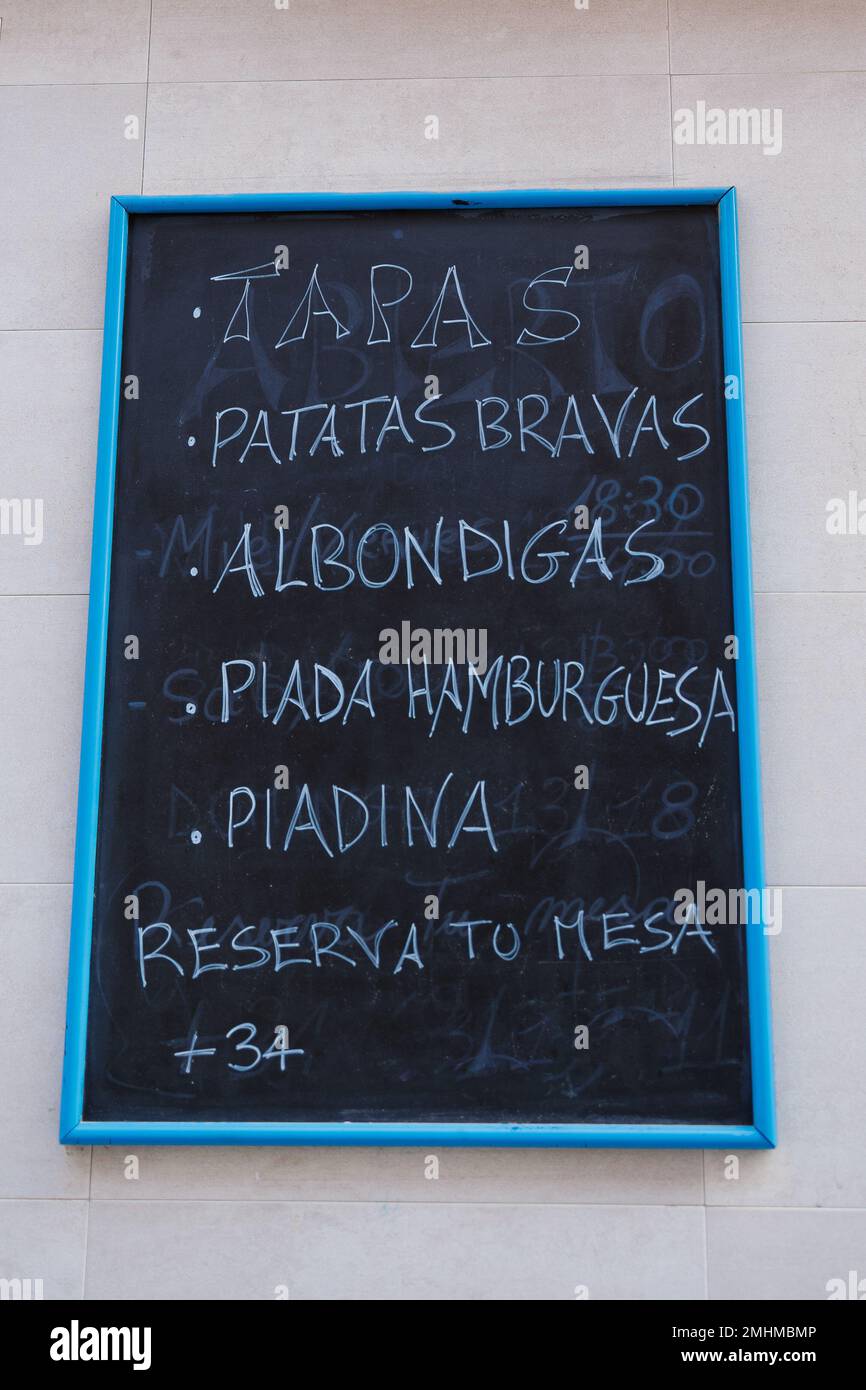 · TAPAS
· PATATAS BRAVAS
· ALBONDIGAS
· PIADA HAMBURGUESA
· PIADINA
RESERVA TU MESA
+34
alamy
Image ID: 2MHMBMP
www.alamy.com